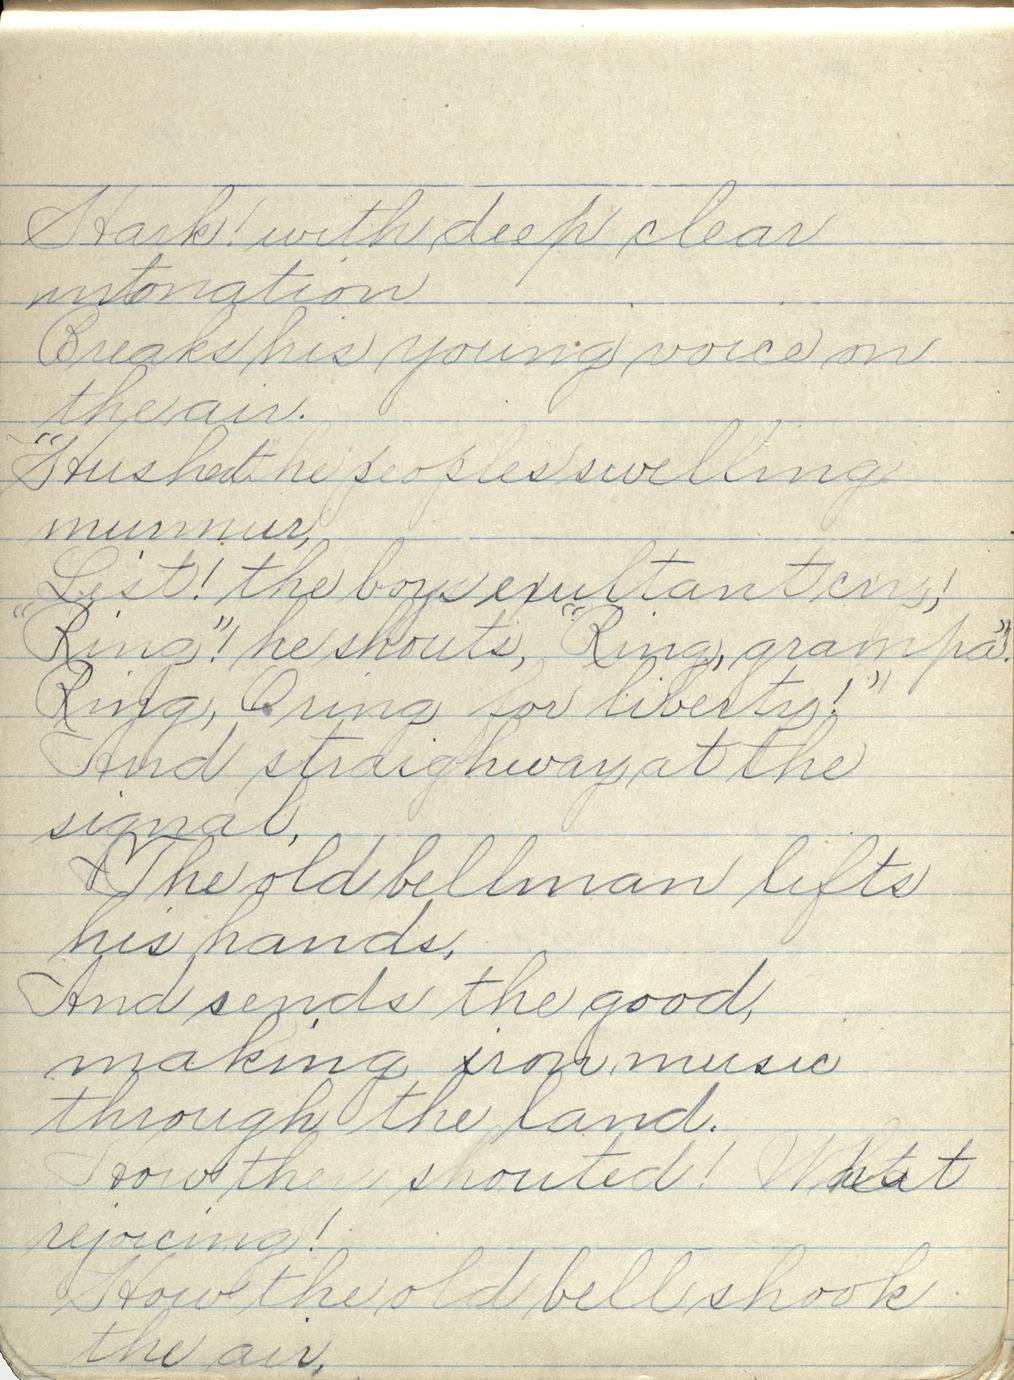 Hark! with deep clear
intonation
Breaks his young voice on
the air.
"Hushed the peoples swelling
murmur,
List! the boys exultant cry!
"Ring"! he shouts, "Ring, grampa".
Ring, O ring for liberty!"
And straighway at the
signal,
The old bellman lifts
his hands,
And sends the good,
making iron, music
through the land.
How they shouted! What
rejoicing!
How the old bell shook
the air,